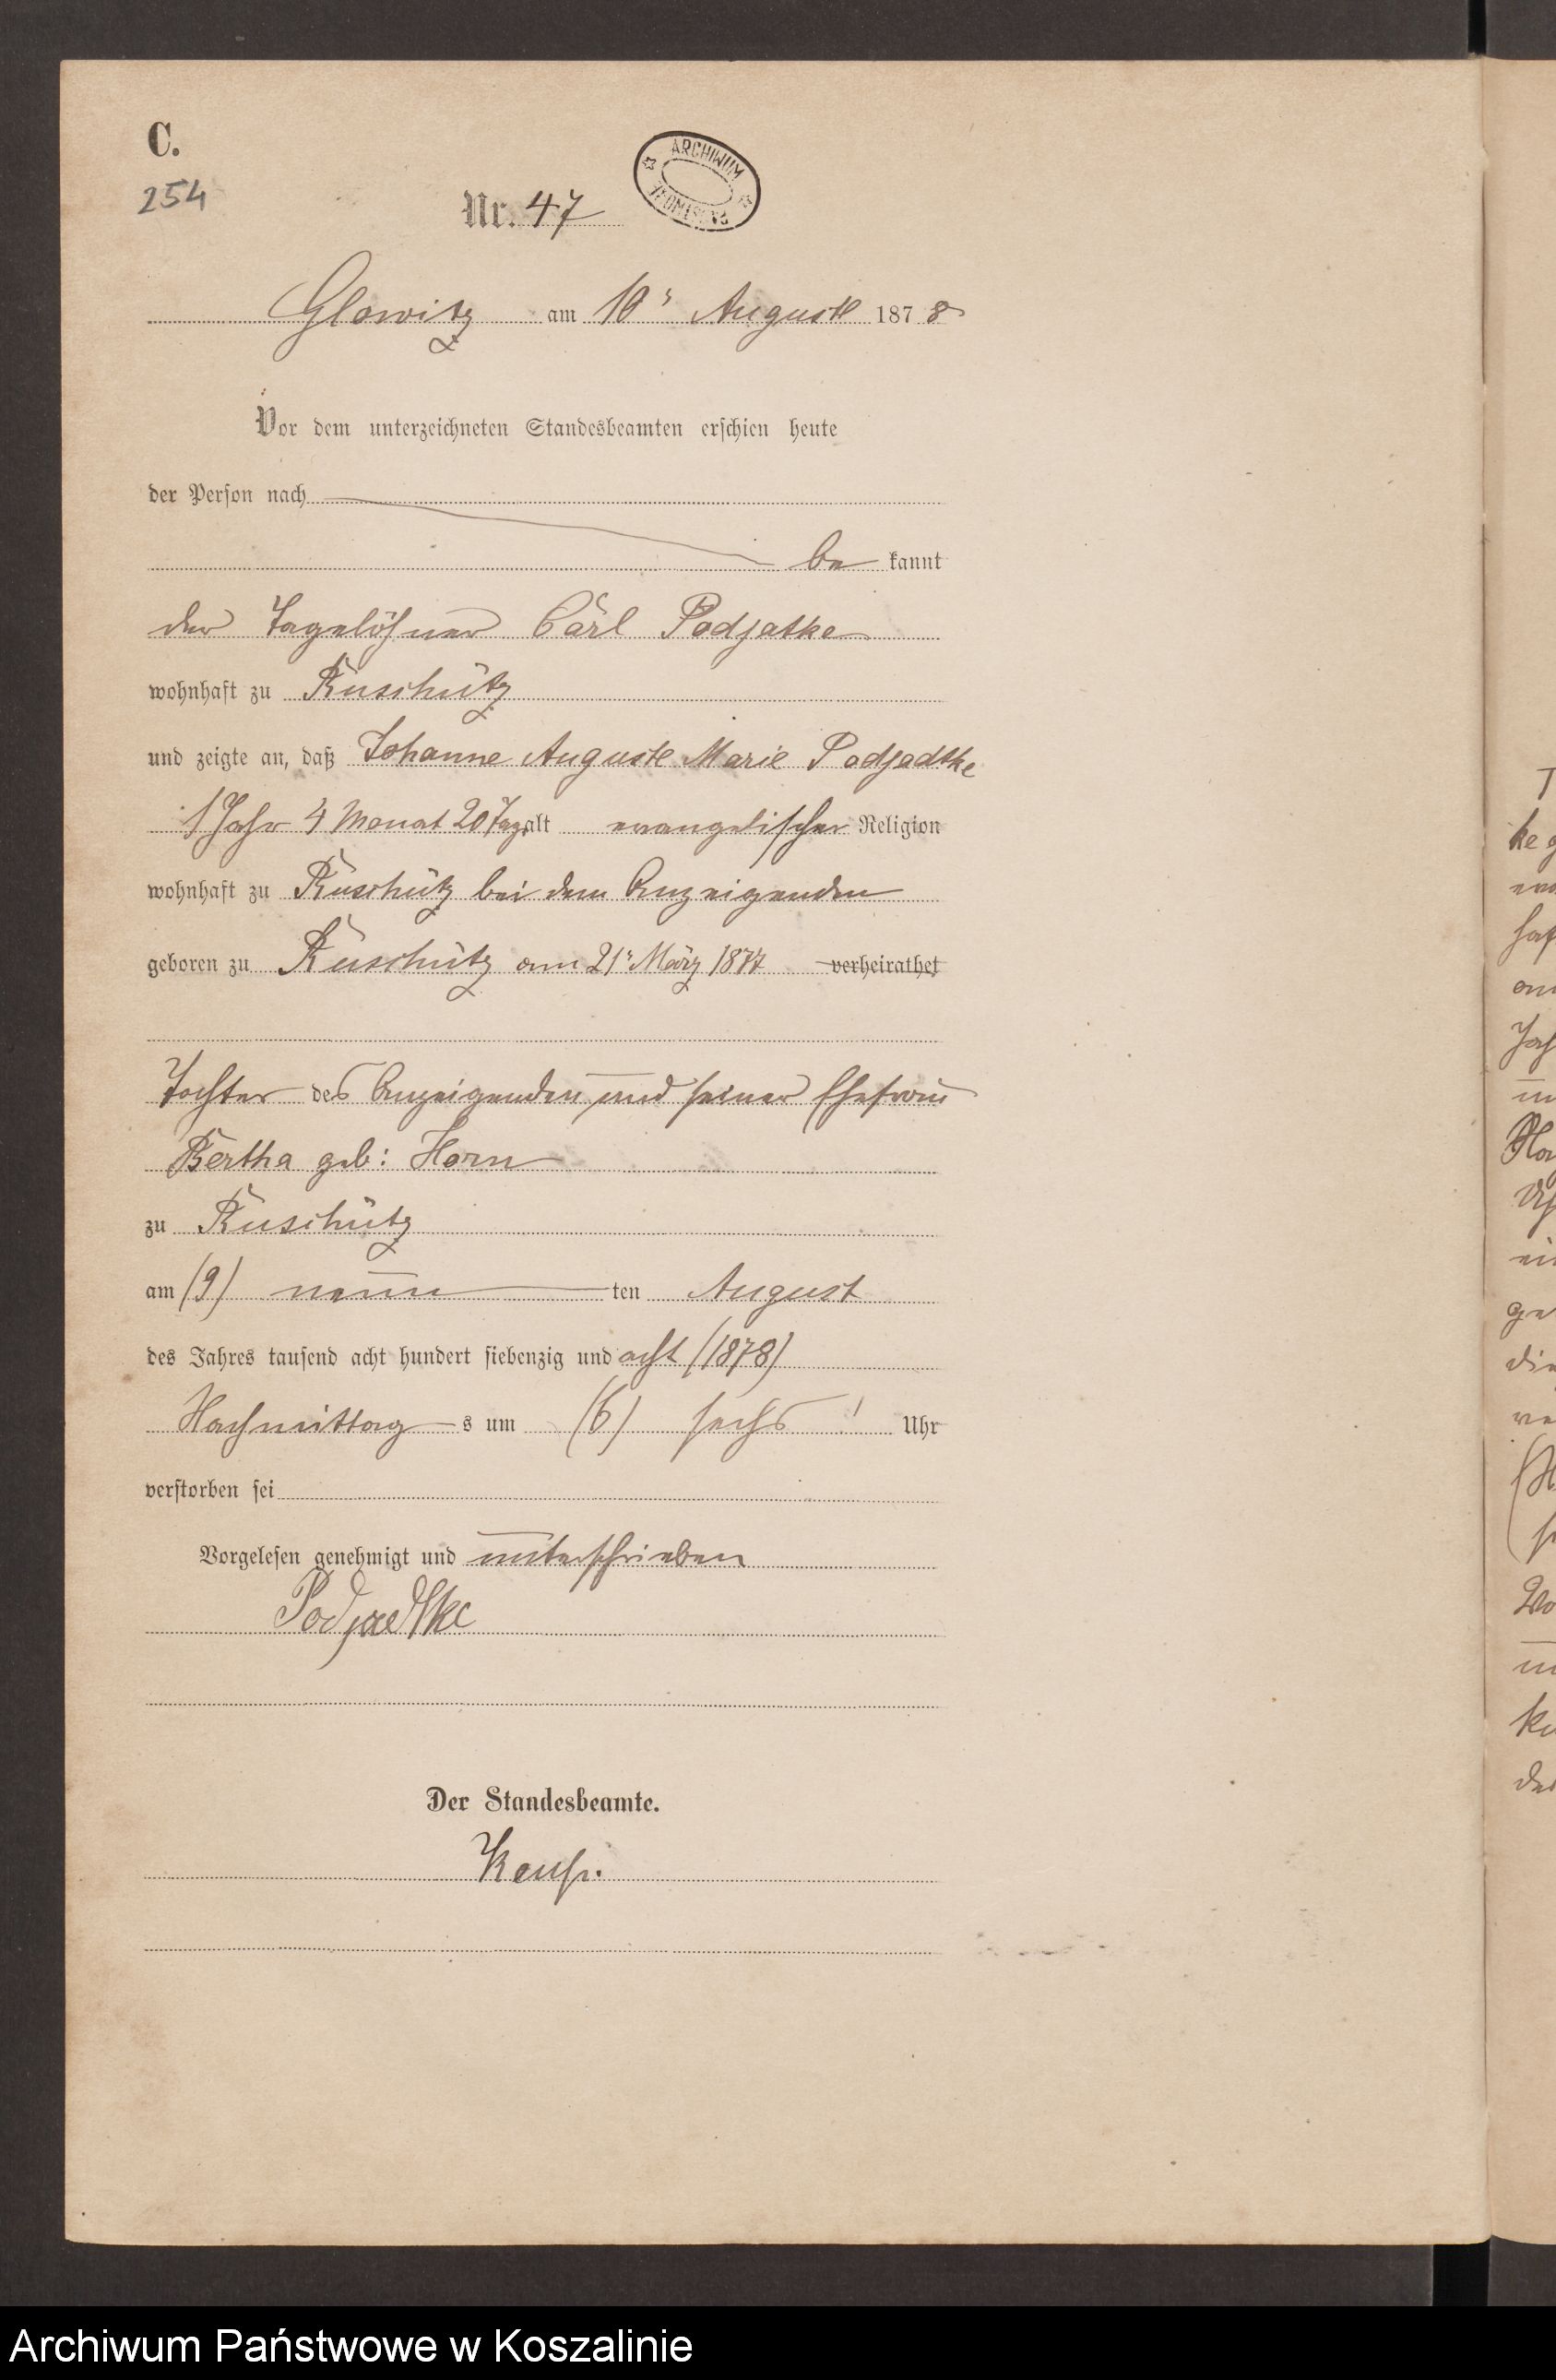 C.
254
Nr. 47
ARCHIWUM PAŃSTWOWE
Glowitz am 10t August 1878
Vor dem unterzeichneten Standesbeamten erschien heute
der Person nach
be kannt
der Tagelöhner Carl Podjatke
wohnhaft zu Ruschütz
und zeigte an, daß Johanne Auguste Marie Podjadtke
1 Jahr 4 Monat 20 Tage alt evangelischer Religion
wohnhaft zu Ruschütz bei dem Anzeigenden
geboren zu Ruschütz am 21t März 1877 verheirathet
Tochter des Anzeigenden und seiner Ehefrau
Bertha geb: Horn
zu Ruschütz
am (9) neun ten August
des Jahres tausend acht hundert siebenzig und acht (1878)
Nachmittag s um (6) sechs Uhr
verstorben sei
Vorgelesen genehmigt und unterschrieben
Podjaedtke
Der Standesbeamte.
Archiwum Państwowe w Koszalinie